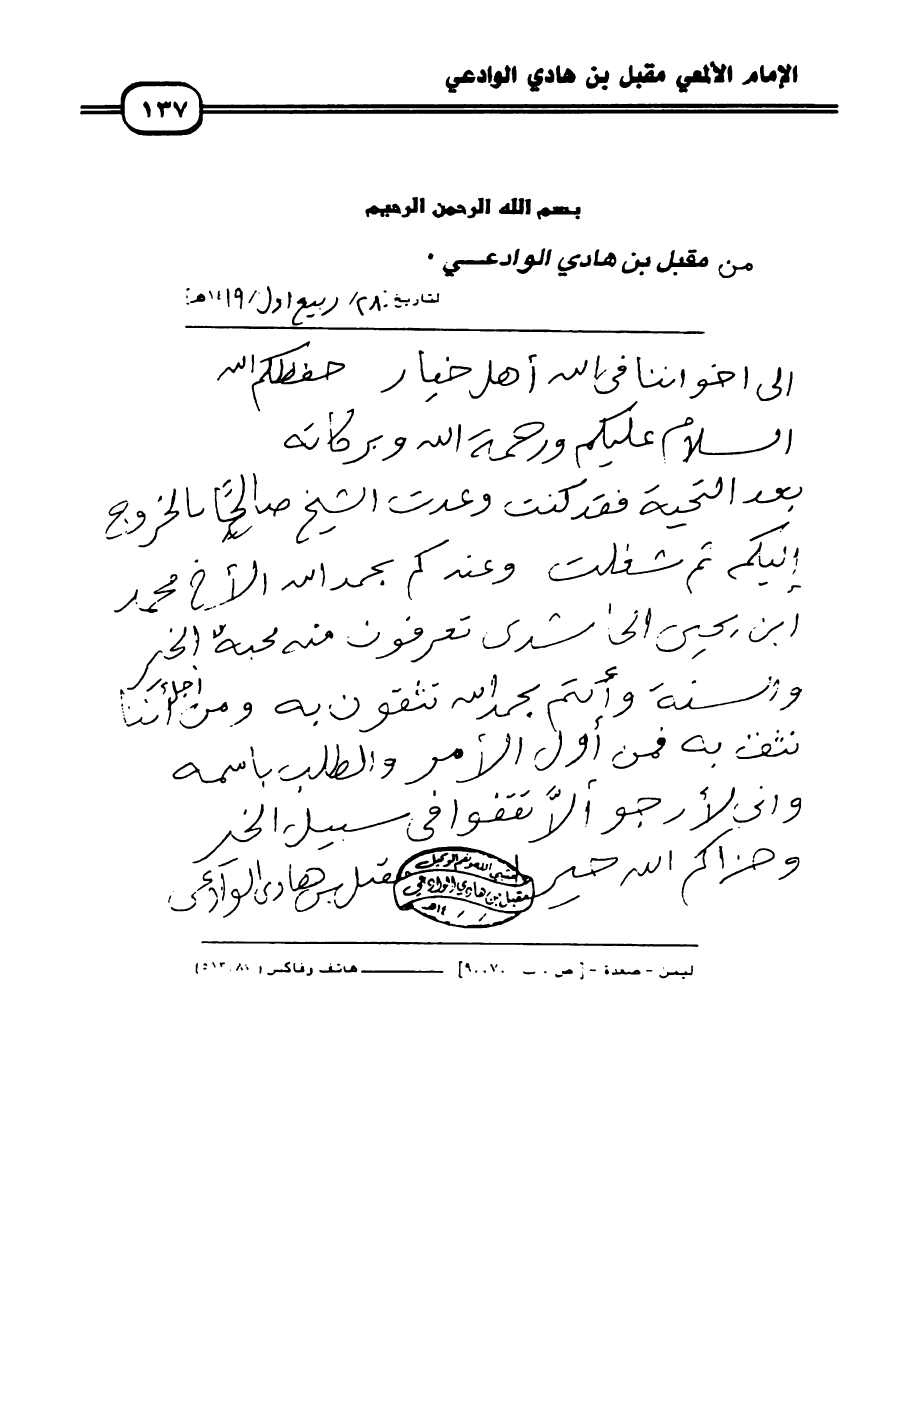 الإمام الألمعي مقبل بن هادي الوادعي
١٣٧
بسم الله الرحمن الرحيم
من مقبل بن هادي الوادعــي .
لتاريخ: ٢٨/ ربيع اول/ ١٤١٩هـ]
الى اخواننا في الله أهل خيار حفظكم الله
السلام عليكم ورحمة الله وبركاته
بعد التحية فقد كنت وعدت الشيخ صالحًا بالخروج
إليكم ثم شغلت وعندكم بحمد الله الأخ محمد
ابن يحيى تعرفون منه محبة الخير
والسنة وأنتم بحمد الله تثقون به ومن أجل أننا
نثق به فمن أول الأمر والطلب باسمه
واني لأرجو ألاّ تقفوا في سبيل الخير
وجزاكم الله خير مقبل بن هادي الوادعي
حسبي الله ونعم الوكيل
مقبل بن هادي الوادعي
١٤ / / هـ
ليمن - صعدة - [ص . ب ٩٠٠٧٠] ــــــ هاتف وفاكس